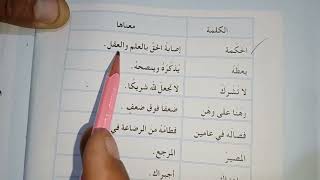 الكلمة معناها
الحكمة إصابة الحق بالعلم والعقل.
يعظه يذكره وينصحه.
لا تشرك لا تجعل لله شريكًا.
وهنا على وهن ضعفا فوق ضعف.
فصاله في عامين فطامه من الرضاعة في
المصير المرجع.
أجبراك.